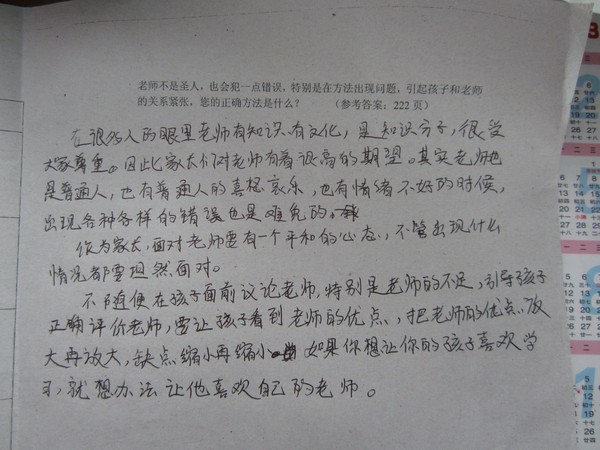 老师不是圣人，也会犯一点错误，特别是在方法出现问题，引起孩子和老师
的关系紧张，您的正确方法是什么？（参考答案：222页）
在很多人的眼里老师有知识、有文化，是知识分子，很受
大家尊重。因此家长们对老师有着很高的期望。其实老师也
是普通人，也有普通人的喜怒哀乐，也有情绪不好的时候，
出现各种各样的错误也是难免的，
作为家长，面对老师要有一个平和的心态，不管出现什么
情况都要坦然面对。
不随便在孩子面前议论老师，特别是老师的不足，引导孩子
正确评价老师，要让孩子看到老师的优点，把老师的优点放
大再放大，缺点缩小再缩小 如果你想让你的孩子喜欢学
习，就想办法让他喜欢自己的老师。